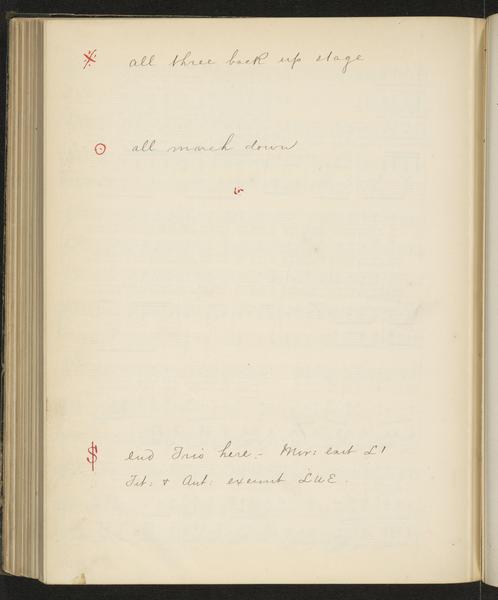 ※ all three back up stage
⊙ all march down
$ end Trio here - Mir: exit L1
Tit: & Ant: exeunt LUE.